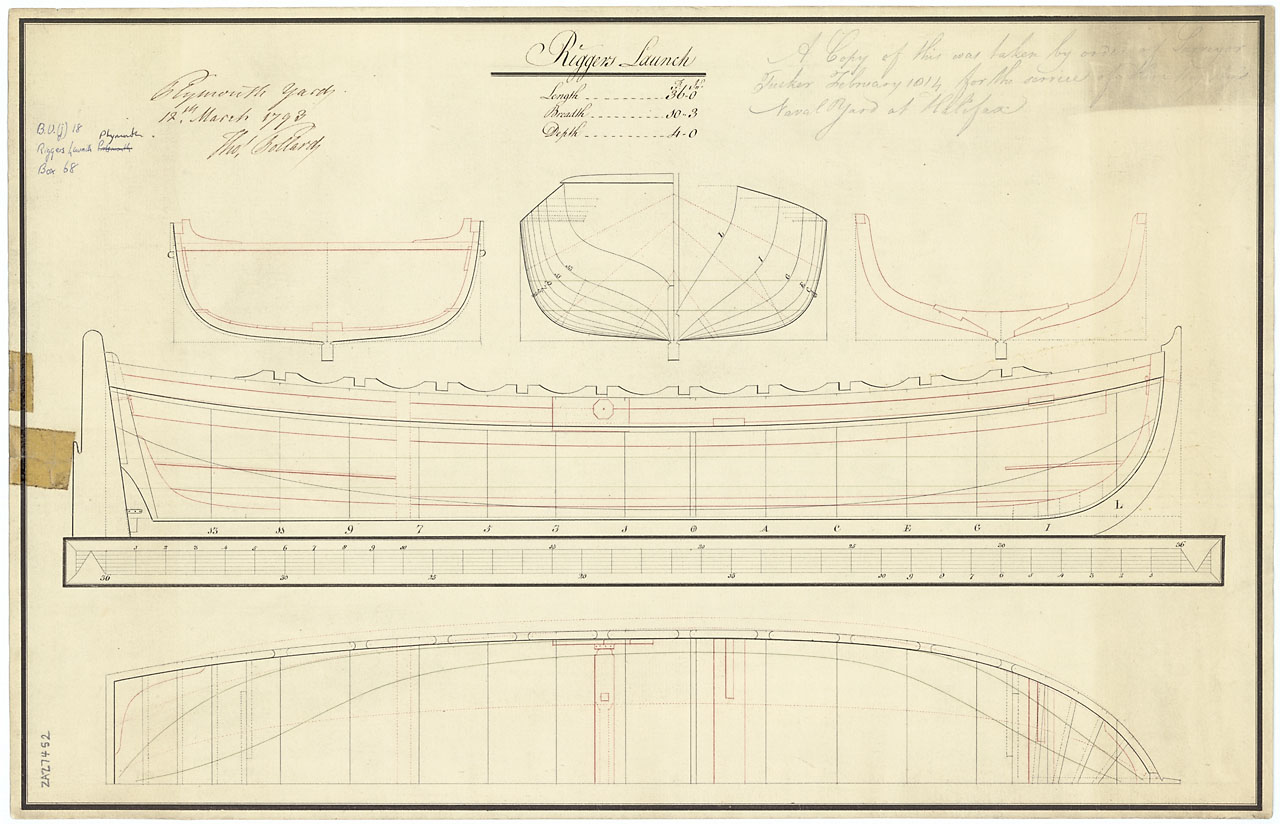 Riggers Launch
F In
Length 36-0
Breadth 10-3
Depth 4-0
Plymouth Yard
12th March 1793
Thos Pollard
A Copy of this was taken by order of Surveyor
Tucker February 1814 for the service of
Naval Yard at Halifax
B.U.(J) 18
Plymouth
Riggers launch
Box 68
L I G
L
13 11 9 7 5 3 1 A C E G I
1 2 3 4 5 6 7 8 9 10 15 20 25 30 36
36 30 25 20 15 10 9 8 7 6 5 4 3 2 1
ZAZ7452